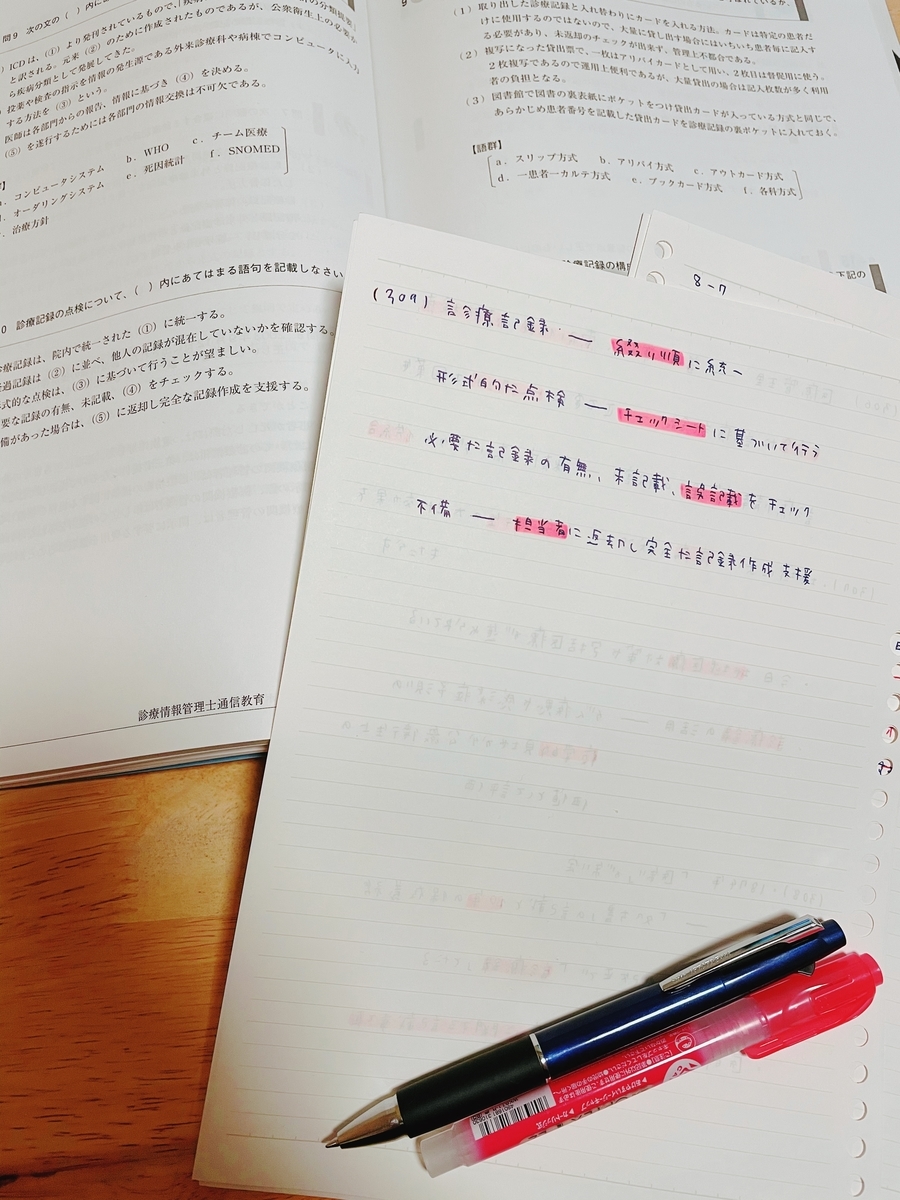 問9 次の文の（ ）内に
ICDは、（①）より発刊されているもので、「疾病
と訳される。元来（②）のために作成されたものであるが、公衆衛生上の必要か
ら疾病分類として発展してきた。
投薬や検査の指示を情報の発生源である外来診療科や病棟でコンピュータに入力
する方法を（③）という。
医師は各部門からの報告、情報に基づき（④）を決める。
（⑤）を遂行するためには各部門の情報交換は不可欠である。
a．コンピュータシステム b．WHO c．チーム医療
d．オーダリングシステム e．死因統計 f．SNOMED
．治療方針
0 診療記録の点検について、（ ）内にあてはまる語句を記載しなさい
診療記録は、院内で統一された（①）に統一する。
経過記録は（②）に並べ、他人の記録が混在していないかを確認する。
形式的な点検は、（③）に基づいて行うことが望ましい。
必要な記録の有無、未記載、（④）をチェックする。
不備があった場合は、（⑤）に返却し完全な記録作成を支援する。
診療情報管理士通信教育
（1）取り出した診療記録と入れ替わりにカードを入れる方法。カードは特定の患者だ
けに使用するのではないので、大量に貸し出す場合にはいちいち患者毎に記入す
る必要があり、未返却のチェックが出来ず、管理上不都合である。
（2）複写になった貸出票で、一枚はアリバイカードとして用い、2枚目は督促用に使う。
2枚複写であるので運用上便利であるが、大量貸出の場合は記入枚数が多く利用
者の負担となる。
（3）図書館で図書の裏表紙にポケットをつけ貸出カードが入っている方式と同じで、
あらかじめ患者番号を記載した貸出カードを診療記録の裏ポケットに入れておく。
【語群】
a．スリップ方式 b．アリバイ方式 c．アウトカード方式
d．一患者一カルテ方式 e．ブックカード方式 f．各科方式
診療記録の構
下記の
8-7
(309) 診療記録 — 綴り順に統一
形式的な点検 — チェックシートに基づいて行う
必要な記録の有無、未記載、誤記載をチェック
不備 — 担当者に返却し完全な記録作成支援